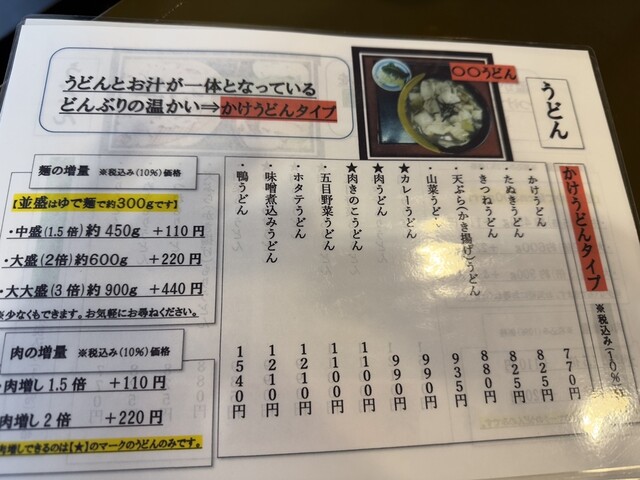 うどん
〇〇うどん
うどんとお汁が一体となっている
どんぶりの温かい⇒かけうどんタイプ
かけうどんタイプ ※税込み(10%)
・かけうどん 770円
・たぬきうどん 825円
・きつねうどん 825円
・天ぷら(かき揚げ)うどん 880円
・山菜うどん 935円
★カレーうどん 990円
★肉うどん 990円
★肉きのこうどん 1100円
・五目野菜うどん 1100円
・ホタテうどん 1210円
・味噌煮込みうどん 1210円
・鴨うどん 1540円
麺の増量 ※税込み(10%)価格
【並盛はゆで麺で約300gです】
・中盛(1.5倍)約450g +110円
・大盛(2倍)約600g +220円
・大大盛(3倍)約900g +440円
※少なくもできます。お気軽にお尋ねください。
肉の増量 ※税込み(10%)価格
・肉増し1.5倍 +110円
肉増し2倍 +220円
肉増しできるのは【★】のマークのうどんのみです。